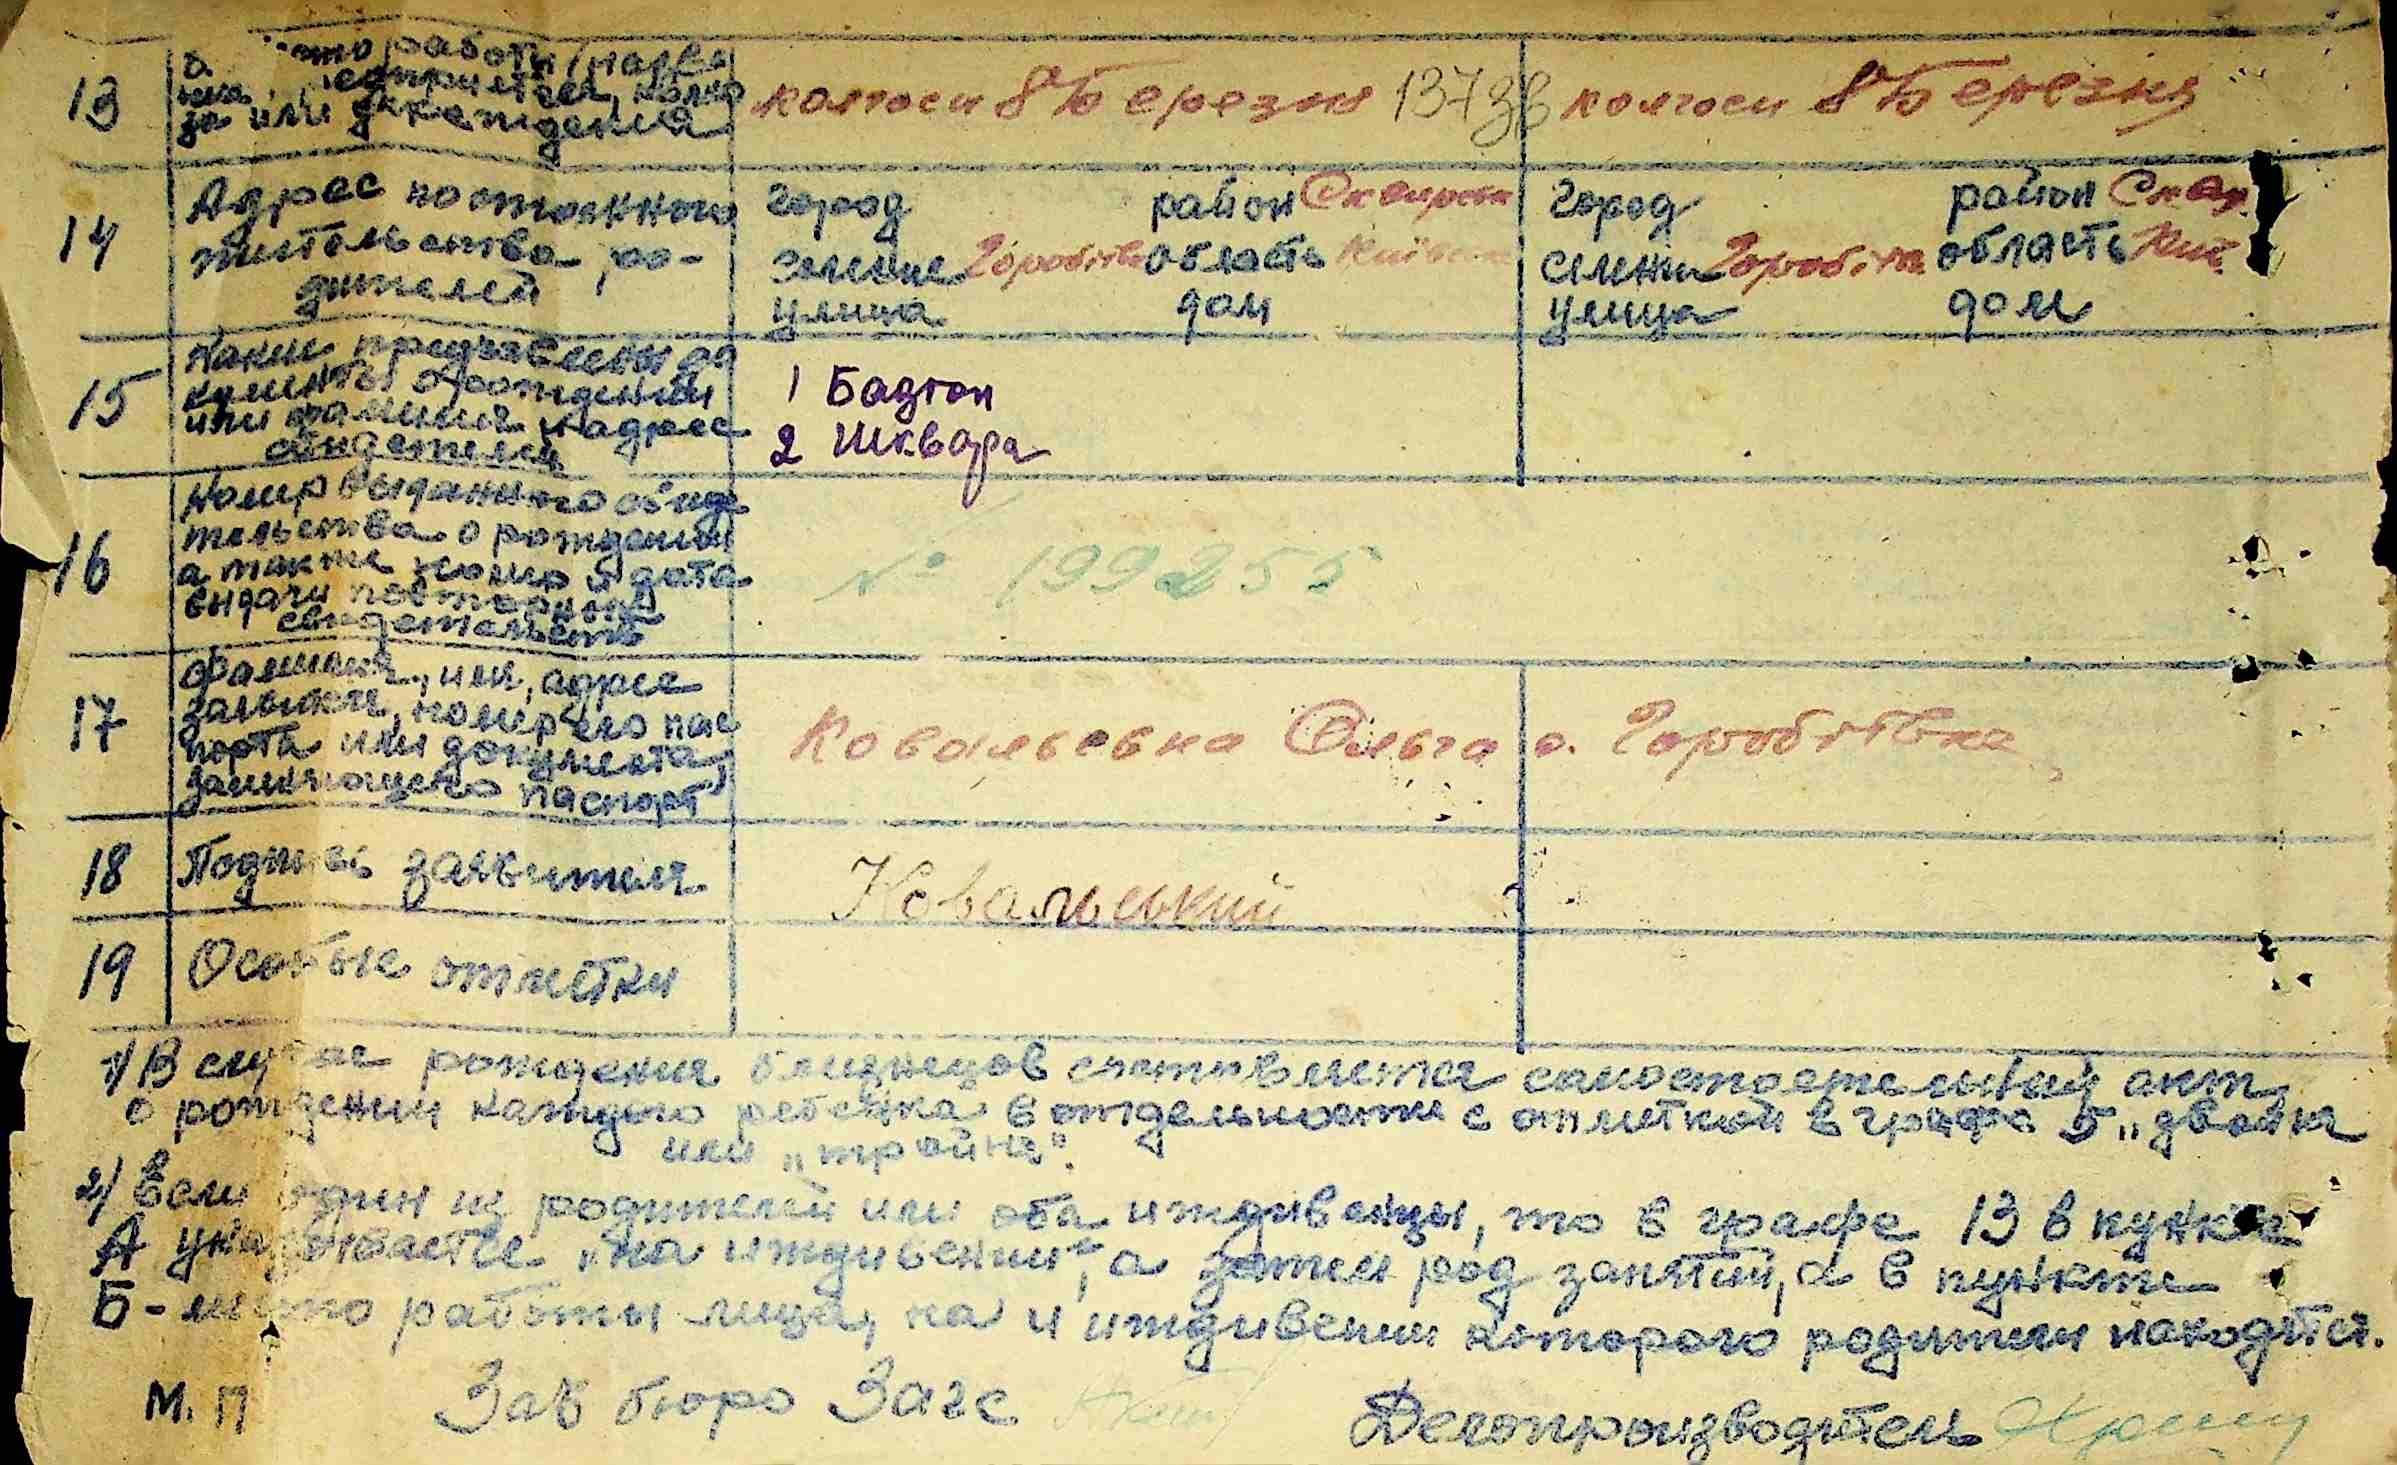 13 Б. место работы (назва
ние предприятия, колхо
за или учреждения
колгосп 8 Березня 1373в колгосп 8 Березня
14 Адрес постоянного
жительства ро-
дителей
город район Сквирськ город район Сквир
селение Горобіївк область Київськ селение Горобіївк область Киів
улица дом улица дом
15 Какие предъявлены до
кументы о рождении
или фамилия и адрес
свидетелей
1 Бадтон
2 Шквара
16 Номер выданного свиде
тельства о рождении
а также номер и дата
выдачи повторных
свидетельств
№ 199255
17 Фамилия, имя, адрес
заявителя, номер его пас
порта или документа,
заменяющего паспорт
Ковальсвка Ольга с. Горобіївка
18 Подпись заявителя Ковальський
19 Особые отметки
1) В случае рождения близнецов составляется самостоятельный акт
о рождении каждого ребенка в отдельности с отметкой в графе 5 „двойня
или „тройня".
2) Если один из родителей или оба иждивенцы, то в графе 13 в пункте
А указывается „на иждивении", а затем род занятий, а в пункте
Б - место работы лица, на и иждивении которого родители находятся.
М. П Зав бюро Загс Делопроизводитель